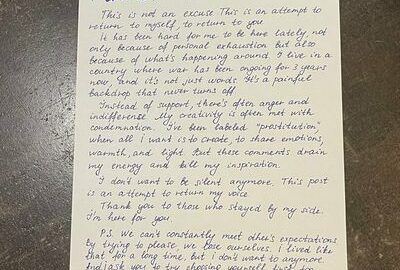 This is not an excuse This is an attempt to
return to myself, to return to you
It has been hard for me to be here lately, not
only because of personal exhaustion but also
because of what's happening around. I live in a
country where war has been ongoing for 3 years
now, and it's not just words. It's a painful
backdrop that never turns off.
Instead of support, there's often anger and
indifference My creativity is often met with
condemnation. I've been labeled "prostitution",
when all I want is to create, to share emotions,
warmth, and light. But these comments drain
my energy and kill my inspiration.
I don't want to be silent anymore. This post
is an attempt to return my voice.
Thank you to those who stayed by my side.
I'm here for you.
P.S. We can't constantly meet other's expectations
by trying to please, we lose ourselves. I lived like
that for a long time, but I don't want to anymore.
And I ask you to try choosing yourself